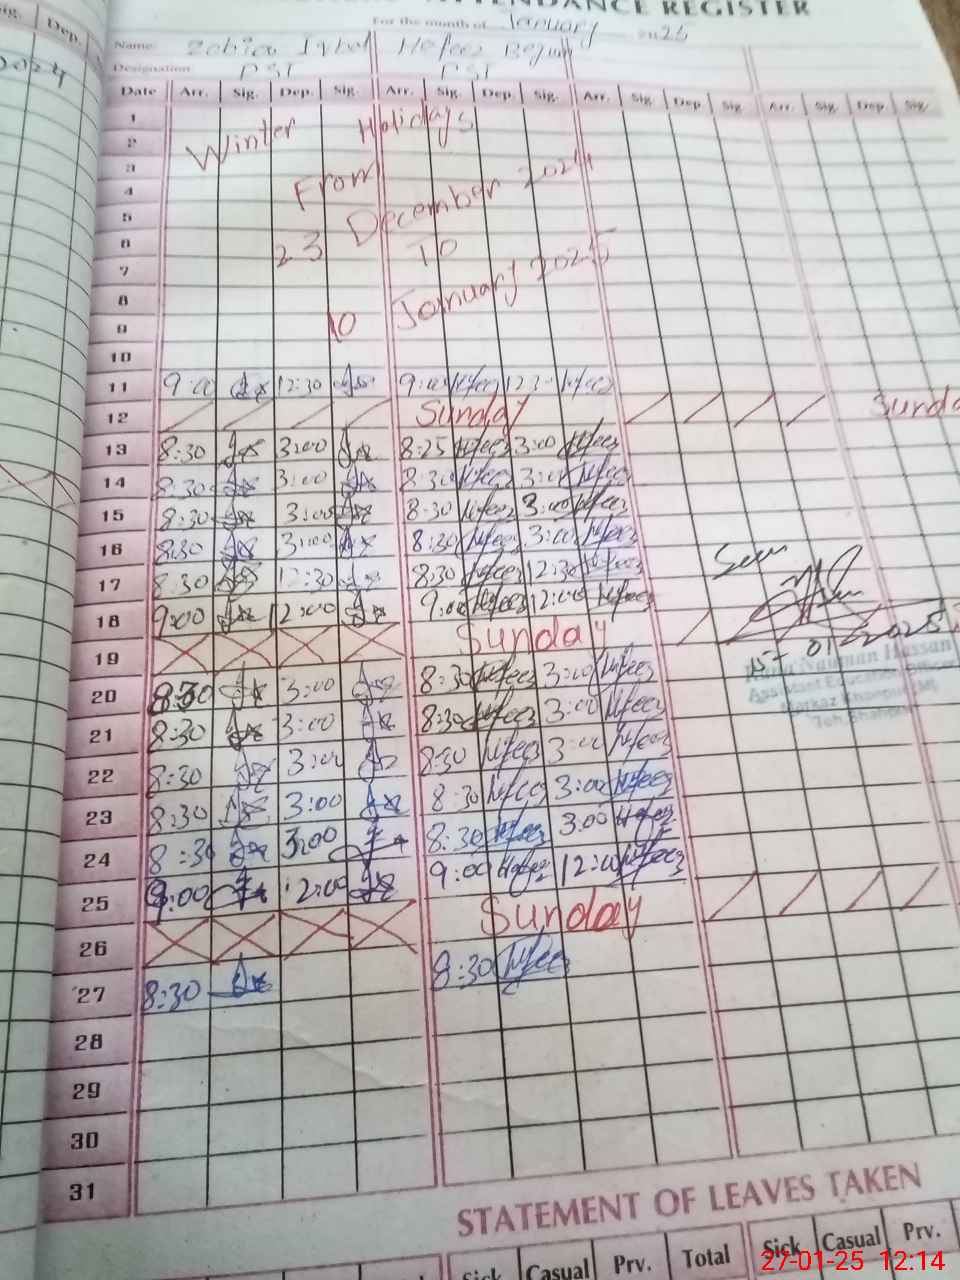 ATTENDANCE REGISTER
For the month of January 2025
Name: Iqbal Hafeez Begum
Designation PST PST
Sig. Dep.
2024
Date Arr. Sig. Dep. Sig. Arr. Sig. Dep. Sig. Arr. Sig. Dep. Sig. Arr. Sig. Dep. Sig.
1
2 Winter Holidays
3
4 From
5 December 2024
6 23 To
7
8 January 2025
9 10
10
11 9:00 12:30 9:00 Hafeez 12:30 Hafeez
12 Sunday Sunda
13 8:30 3:00 8:25 Hafeez 3:00 Hafeez
14 8:30 3:00 8:30 Hafeez 3:00 Hafeez
15 8:30 3:00 8:30 Hafeez 3:00 Hafeez
16 8:30 3:00 8:30 Hafeez 3:00 Hafeez
17 8:30 12:30 8:30 Hafeez 12:30 Hafeez
18 9:00 12:00 9:00 Hafeez 12:00 Hafeez
Seen
19 Sunday
01 2025
Nauman Hassan
Assistant Education Officer
Markaz
Teh.
20 8:30 3:00 8:30 Hafeez 3:00 Hafeez
21 8:30 3:00 8:30 Hafeez 3:00 Hafeez
22 8:30 3:00 8:30 Hafeez 3:00 Hafeez
23 8:30 3:00 8:30 Hafeez 3:00 Hafeez
24 8:30 3:00 8:30 Hafeez 3:00 Hafeez
25 9:00 12:00 9:00 Hafeez 12:00 Hafeez
26 Sunday
27 8:30 8:30 Hafeez
28
29
30
31
STATEMENT OF LEAVES TAKEN
Sick Casual Prv. Total Sick Casual Prv.
27-01-25 12:14